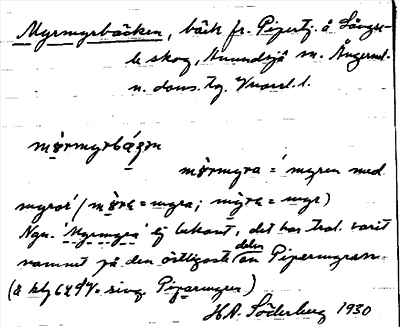 Myrmyrbäcken, bäck fr. Pipertj. å Långse-
le skog, Anundsjö sn. Ångerml.
n. doms. tg. Vnorrl. l.
mỳrmyrbä́ʒɔn
mỳrmyra = 'myren med
myror' (mỳra = myra; mỳra = myr)
Ngn. 'Myrmyra' ej bekant, det har trol. varit
namnet på den östligaste delen av Pipermyrarn
(å kbl 62 sing. Pipamyren)
H.A. Söderberg 1930